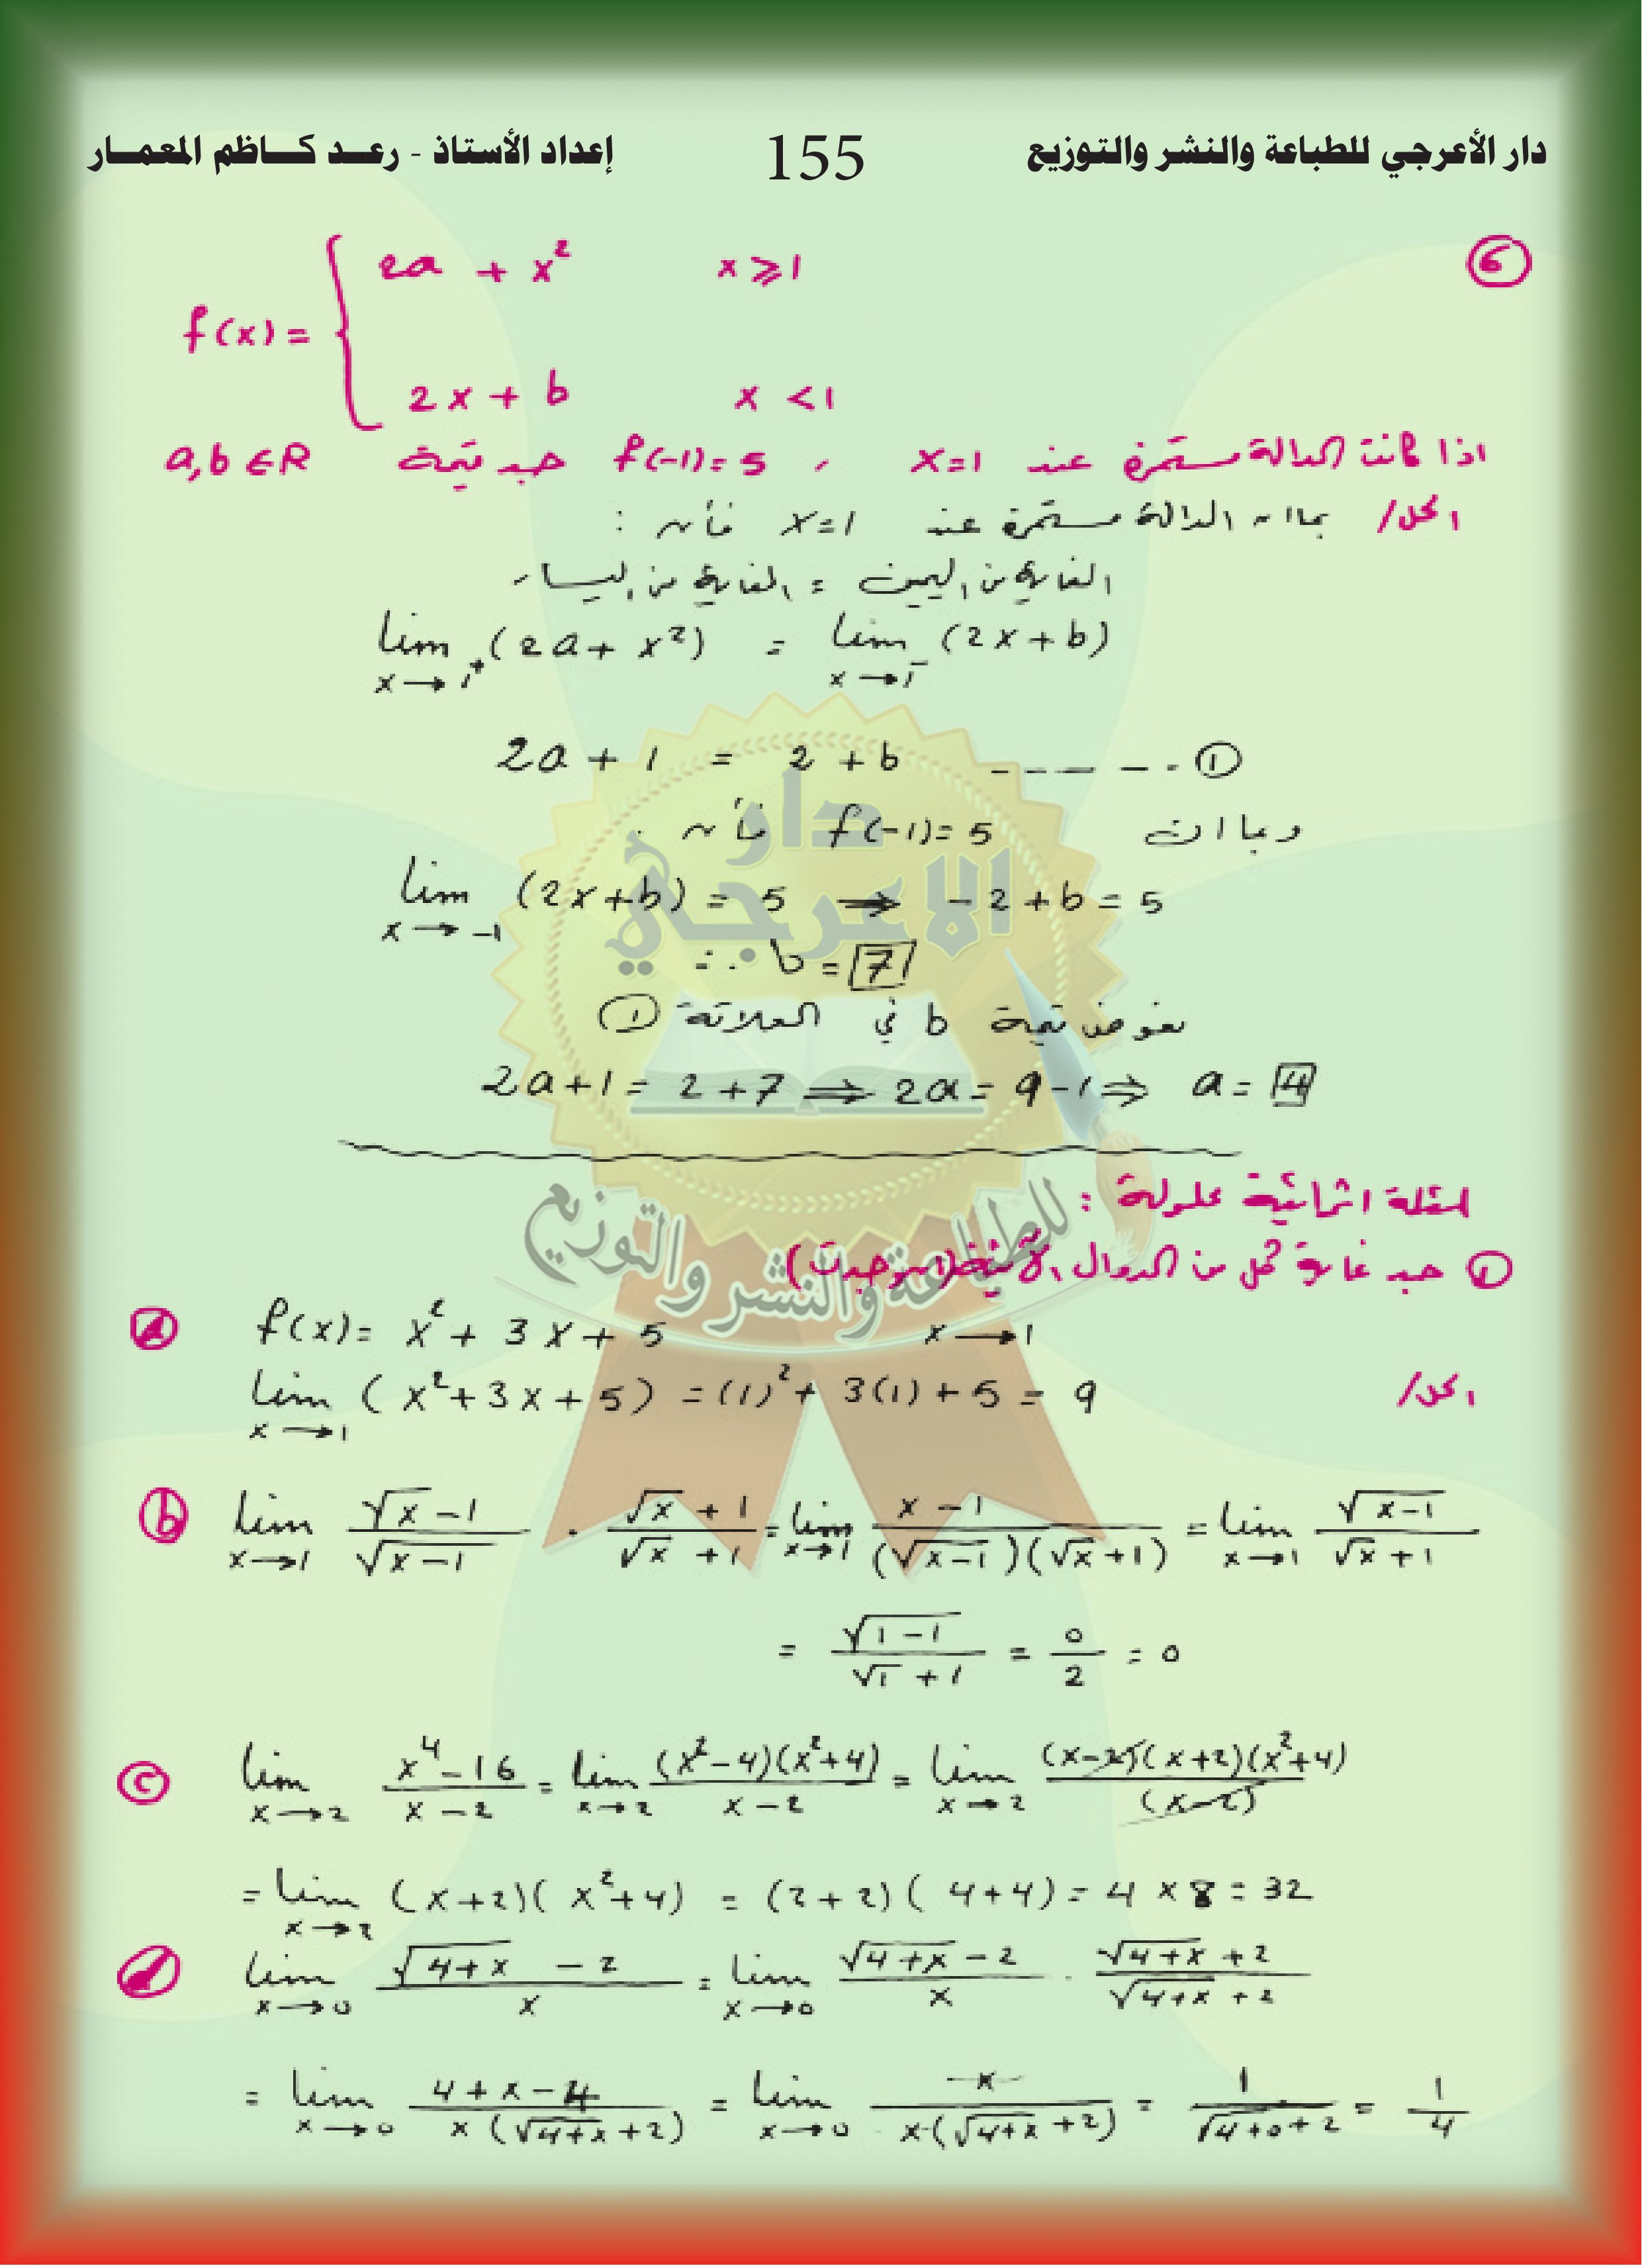 دار الأعرجي للطباعة والنشر والتوزيع 155 إعداد الأستاذ - رعـد كـاظم المعمـار
⑥ f(x) = { 2a + x² x ⩾ 1
2x + b x < 1
اذا كانت الدالة مستمرة عند x=1 ، f(-1)=5 جد قيمة a,b ∈ R
الحل/ بما ان الدالة مستمرة عند x=1 فأن :
الغاية من اليمين = الغاية من اليسار
lim x→1⁺ (2a + x²) = lim x→1⁻ (2x + b)
2a + 1 = 2 + b ----- ①
وبما ان f(-1)=5 فأن :
lim x→-1 (2x+b) = 5 ⇒ -2+b = 5
∴ b = 7
نعوض قيمة b في العلاقة ①
2a+1 = 2+7 ⇒ 2a = 9-1 ⇒ a = 4
امثلة اثرائية محلولة :
① جد غاية كل من الدوال الآتية (ان وجدت)
ⓐ f(x) = x² + 3x + 5 x→1
الحل/ lim x→1 (x²+3x+5) = (1)² + 3(1) + 5 = 9
ⓑ lim x→1 (√x - 1)/(√(x-1)) · (√x + 1)/(√x + 1) = lim x→1 (x-1)/((√(x-1))(√x+1)) = lim x→1 √(x-1)/(√x+1)
= √(1-1)/(√1+1) = 0/2 = 0
ⓒ lim x→2 (x⁴-16)/(x-2) = lim x→2 (x²-4)(x²+4)/(x-2) = lim x→2 (x-2)(x+2)(x²+4)/(x-2)
= lim x→2 (x+2)(x²+4) = (2+2)(4+4) = 4×8 = 32
ⓓ lim x→0 (√(4+x) - 2)/x = lim x→0 (√(4+x) - 2)/x · (√(4+x) + 2)/(√(4+x) + 2)
= lim x→0 (4+x-4)/(x(√(4+x)+2)) = lim x→0 x/(x(√(4+x)+2)) = 1/(√(4+0)+2) = 1/4
دار
الاعرجي
للطباعة والنشر والتوزيع